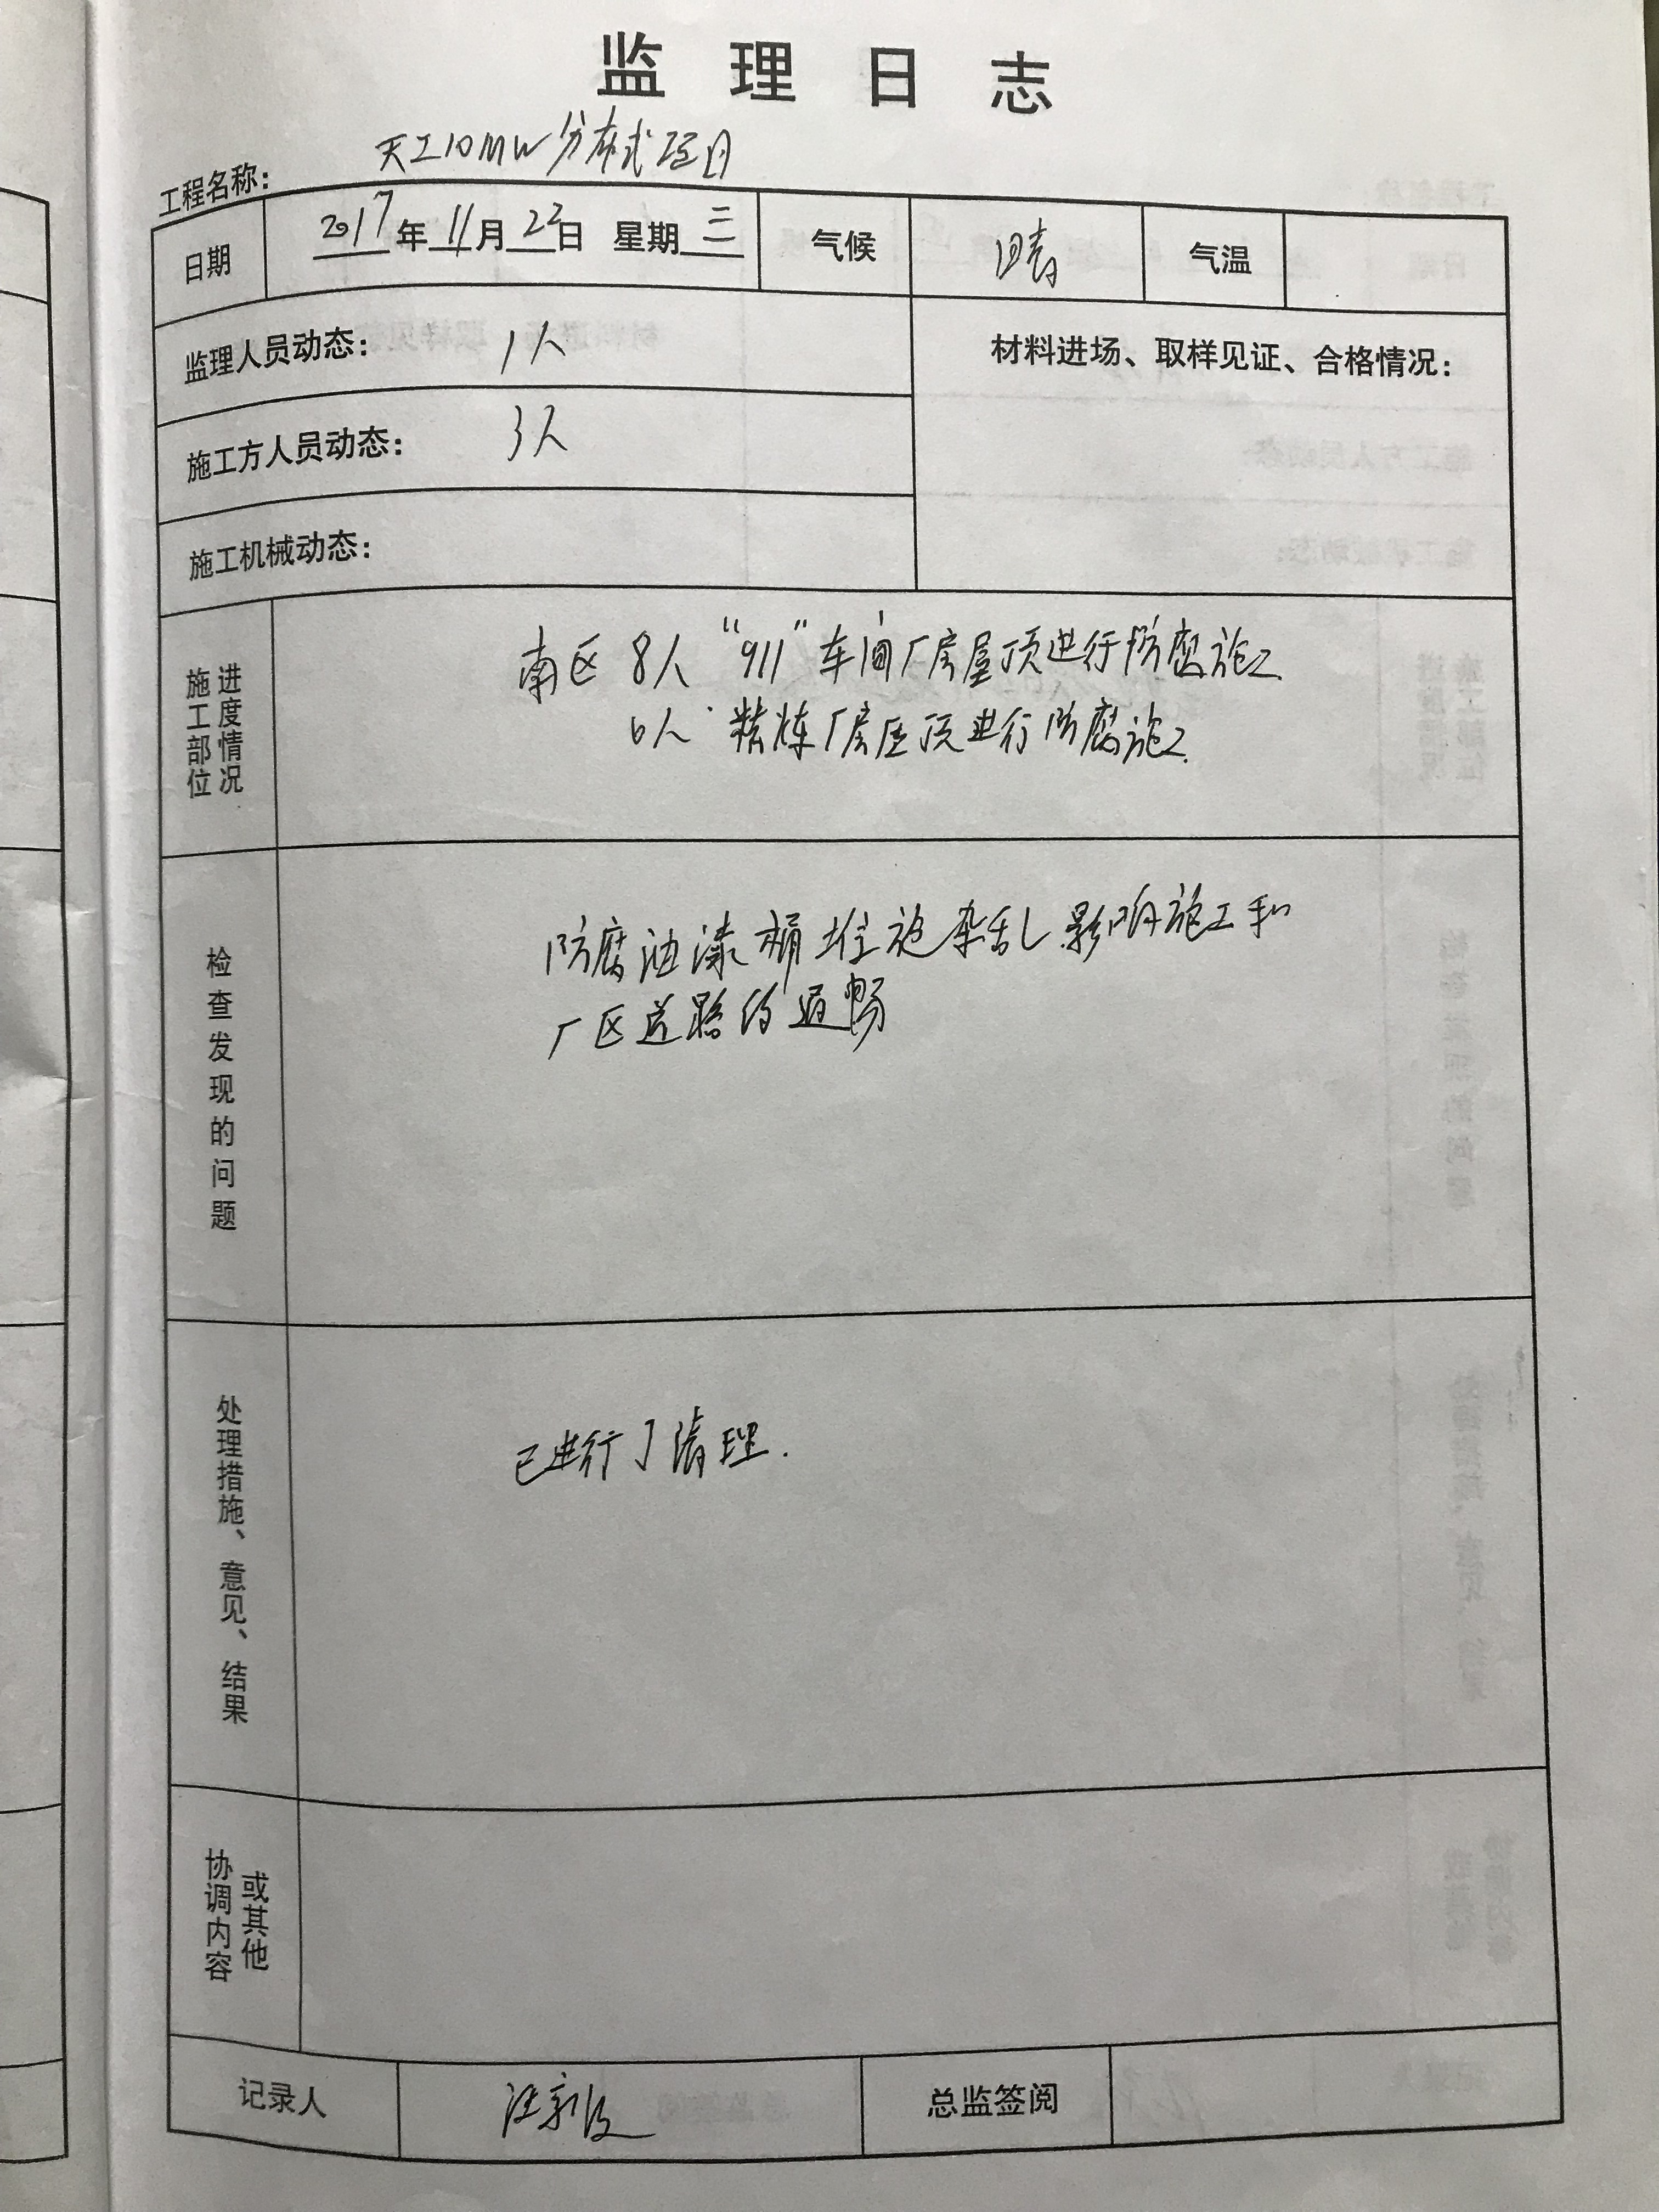 监理日志
工程名称: 天工10MW分布式项目
日期 2017年11月22日 星期三 气候 晴 气温
监理人员动态: 1人 材料进场、取样见证、合格情况:
施工方人员动态: 3人
施工机械动态:
施工部位进度情况
南区 8人 "911"车间厂房屋顶进行防腐施工
6人 精炼厂房屋顶进行防腐施工.
检查发现的问题
防腐油漆桶堆施杂乱影响施工和
厂区道路的通畅
处理措施、意见、结果
已进行了清理.
协调内容或其他
记录人 汪 总监签阅